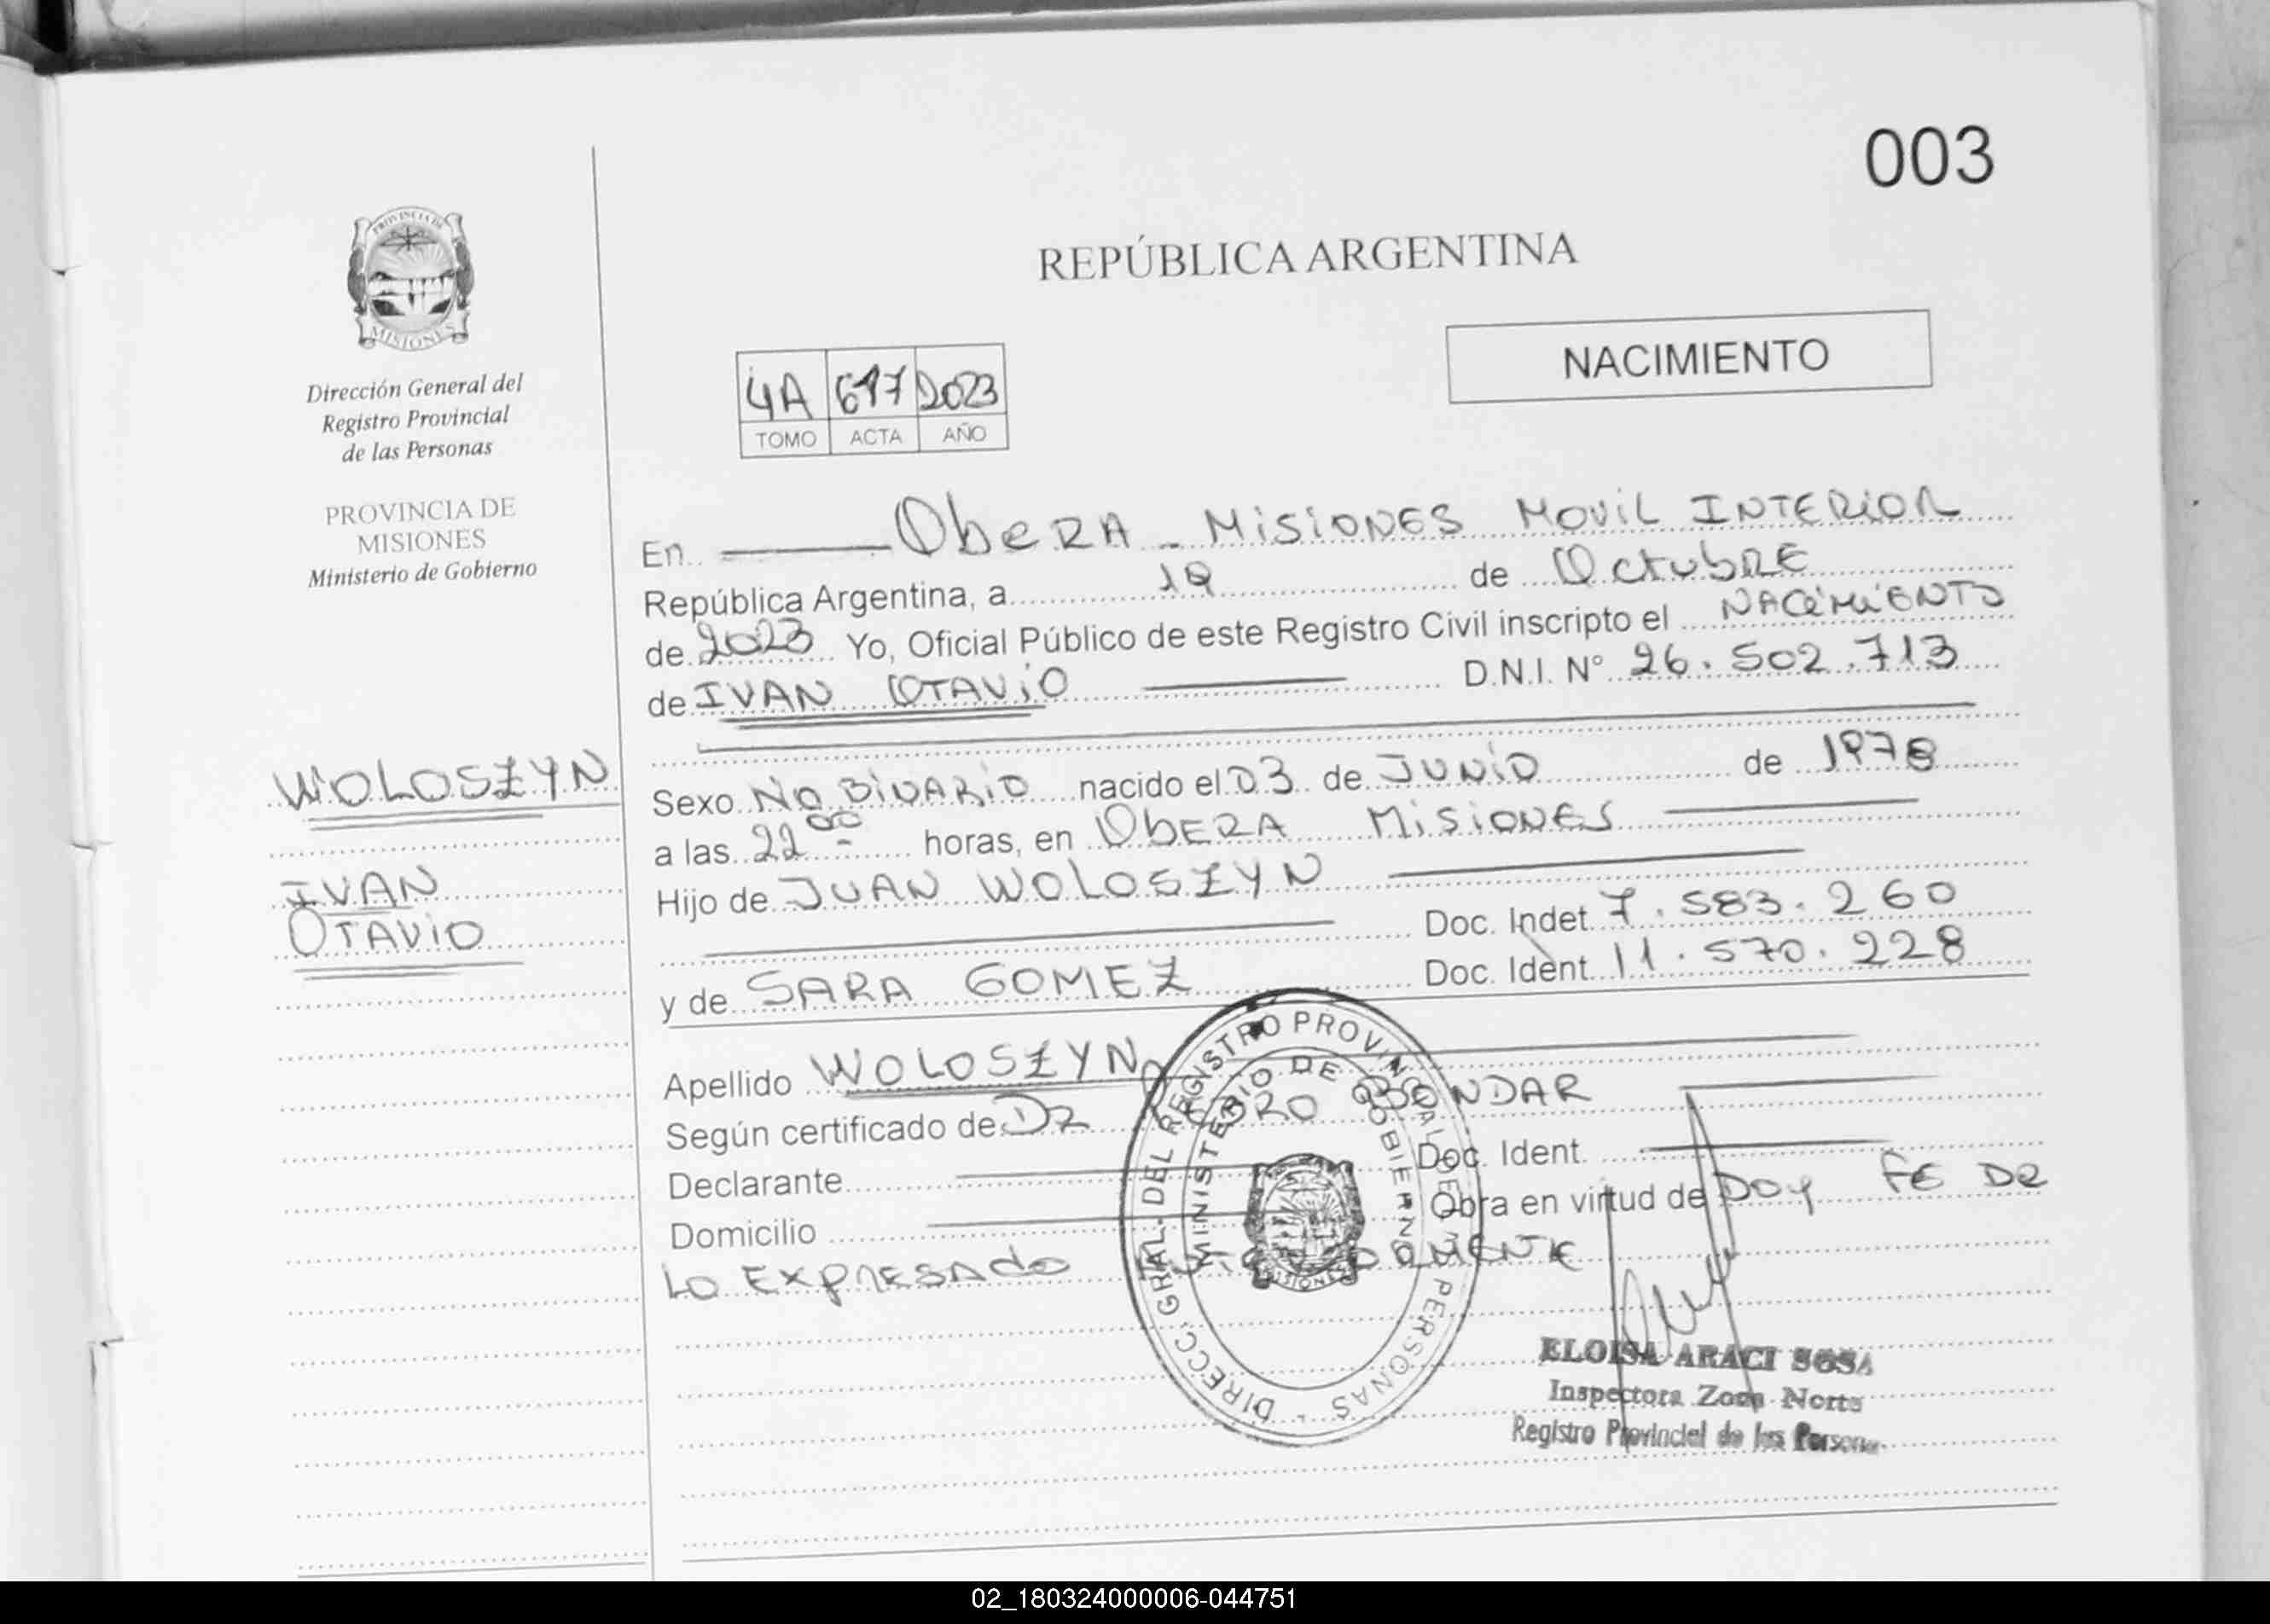 003
PROVINCIA DE
MISIONES
Dirección General del
Registro Provincial
de las Personas
PROVINCIA DE
MISIONES
Ministerio de Gobierno
WOLOSZYN
IVAN
OTAVIO
REPÚBLICA ARGENTINA
NACIMIENTO
4A 617 2023
TOMO ACTA AÑO
En ObeRA - MISIONES MOVIL INTERIOR
República Argentina, a 19 de OctubRE
de 2023 Yo, Oficial Público de este Registro Civil inscripto el NACIMIENTO
de IVAN OTAVIO D.N.I. N° 26.502.713
Sexo NO BINARIO nacido el 03 de JUNIO de 1978
a las 22 00 horas, en ObERA MISIONES
Hijo de JUAN WOLOSZYN
Doc. Indet. 7.583.260
y de SARA GOMEZ Doc. Ident. 11.570.228
Apellido WOLOSZYN
Según certificado de DZ PEDRO BONDAR
Declarante Doc. Ident.
Domicilio Obra en virtud de Doy FE DE
Lo EXPRESAdo
DIRECC. GRAL. DEL REGISTRO PROVINCIAL DE LAS PERSONAS
MINISTERIO DE GOBIERNO
MISIONES
ELOISA ARACI SOSA
Inspectora Zona Norte
Registro Provincial de las Personas
02_180324000006-044751